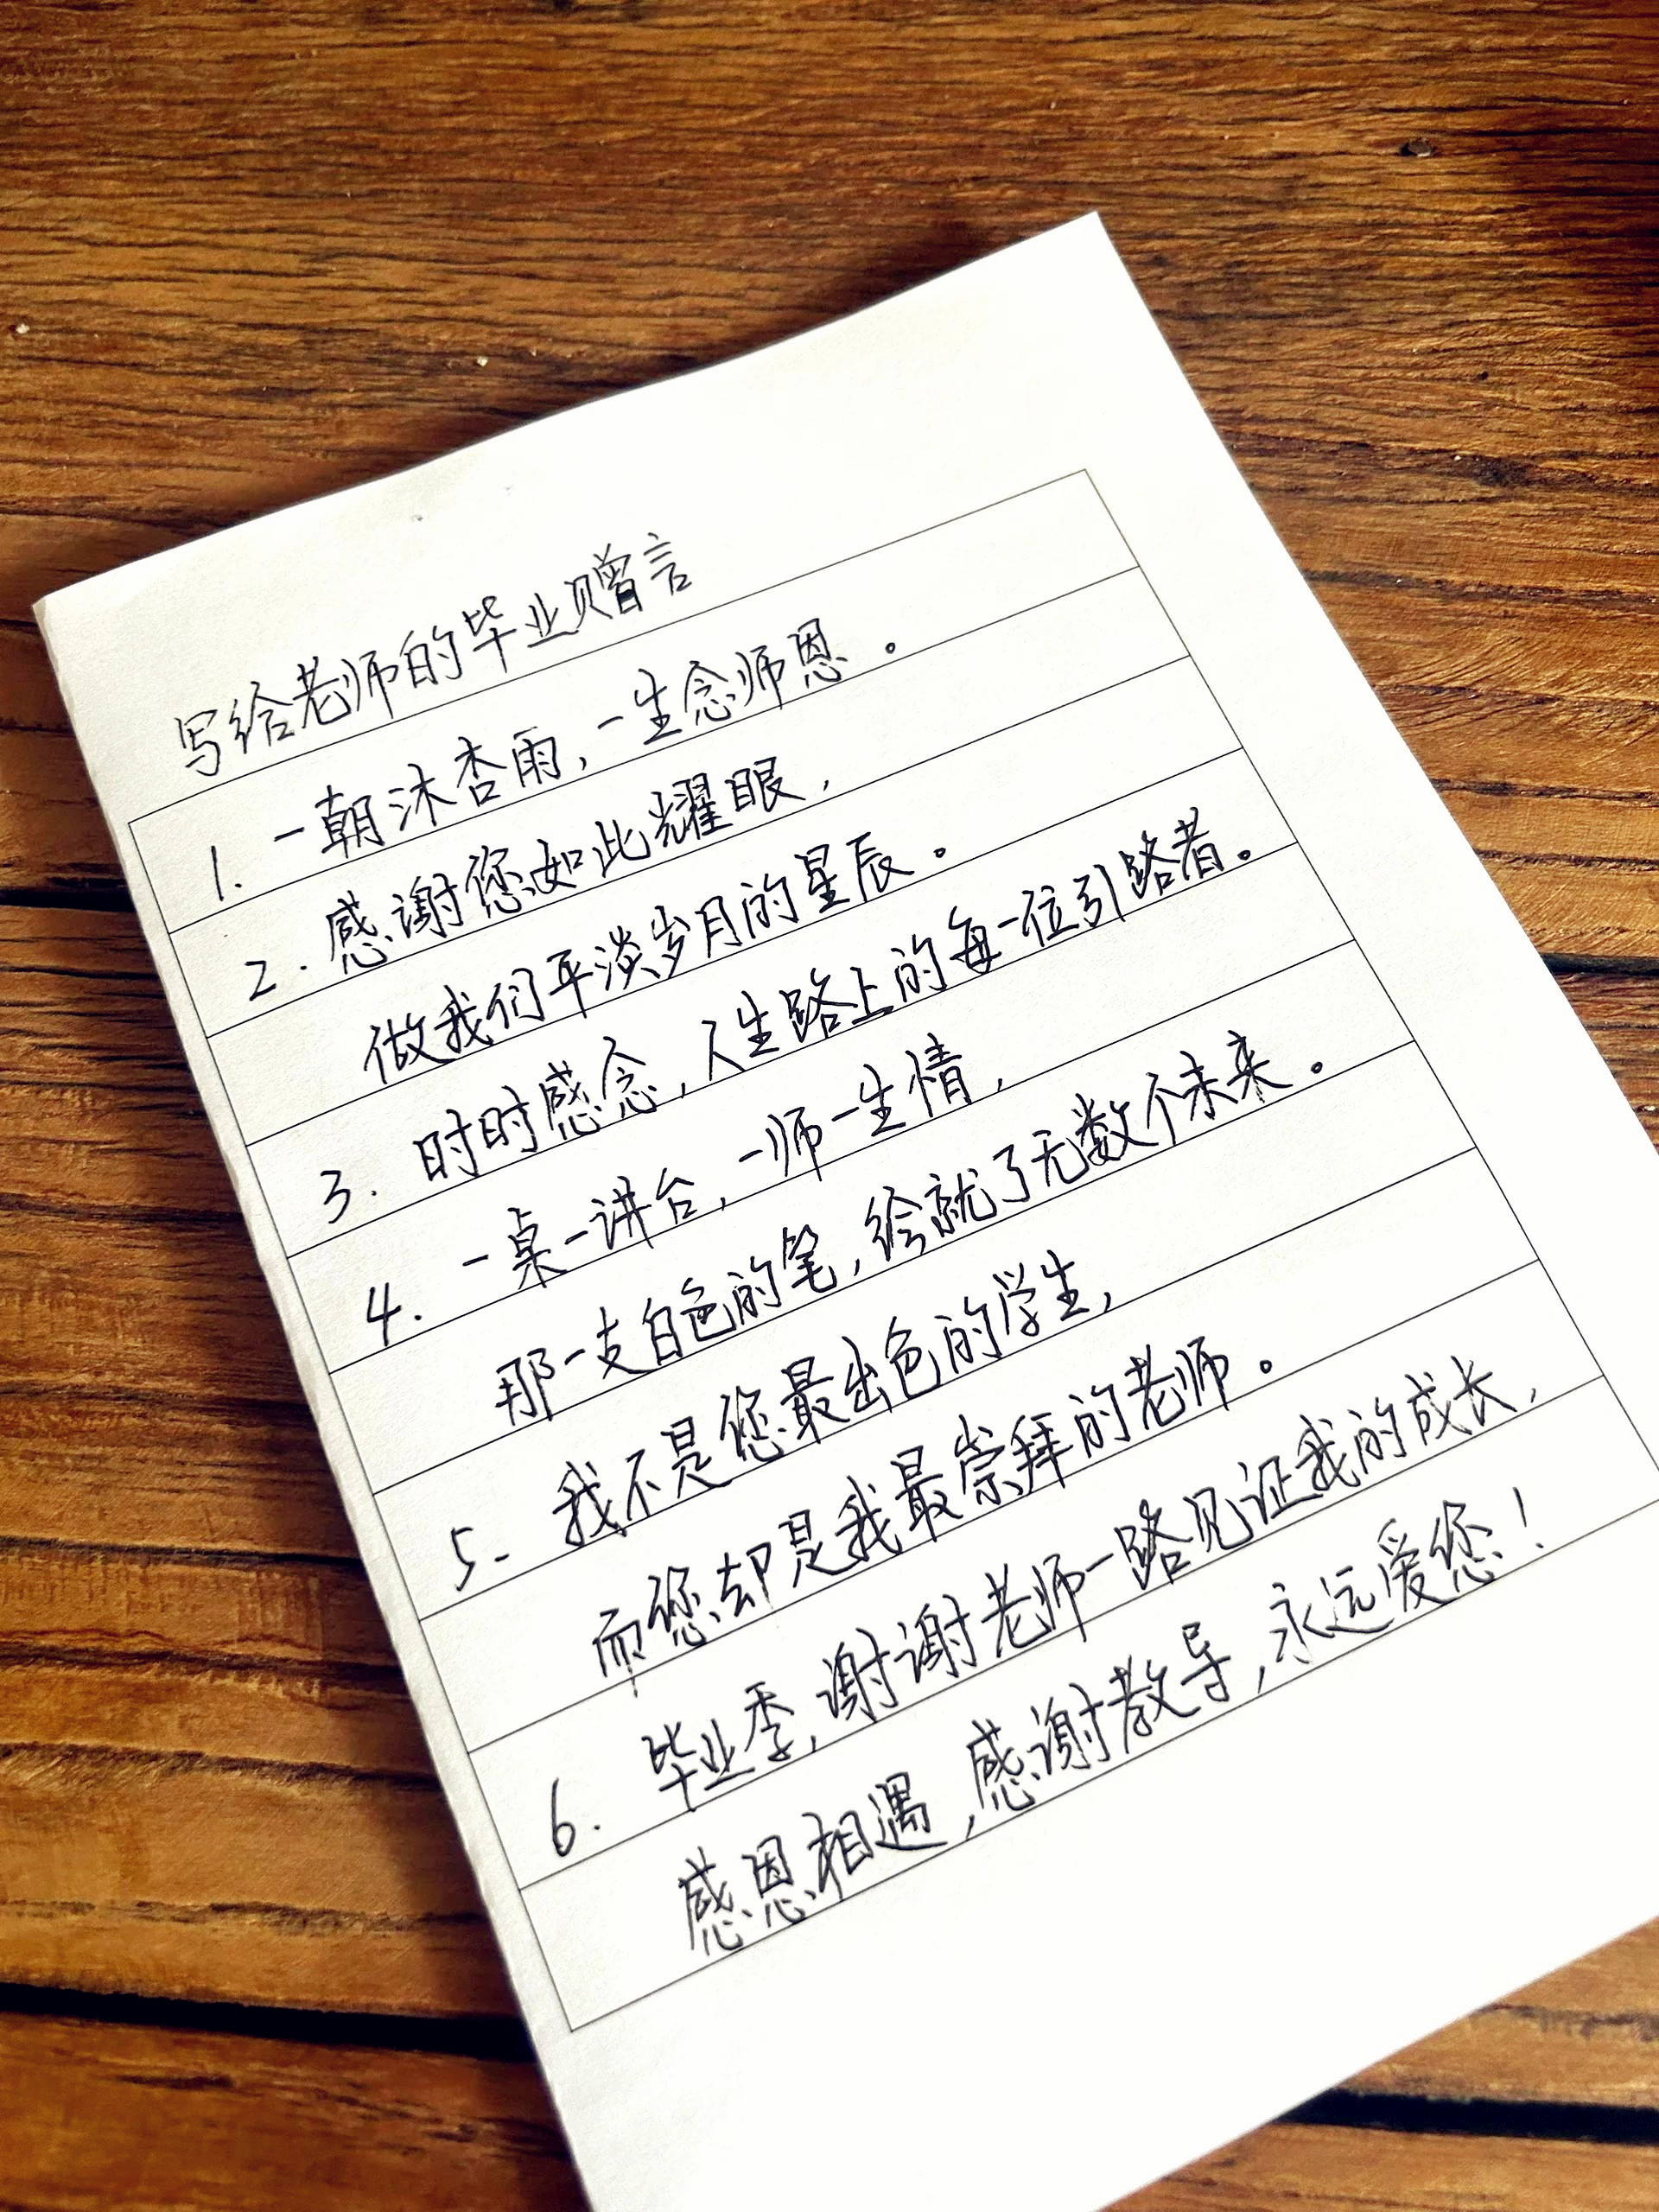 写给老师的毕业赠言
1. 一朝沐杏雨,一生念师恩。
2. 感谢您如此耀眼,
做我们平淡岁月的星辰。
3. 时时感念,人生路上的每一位引路者。
4. 一桌一讲台,一师一生情,
那一支白色的笔,绘就了无数个未来。
5. 我不是您最出色的学生,
而您却是我最崇拜的老师。
6. 毕业季,谢谢老师一路见证我的成长,
感恩相遇,感谢教导,永远爱您!